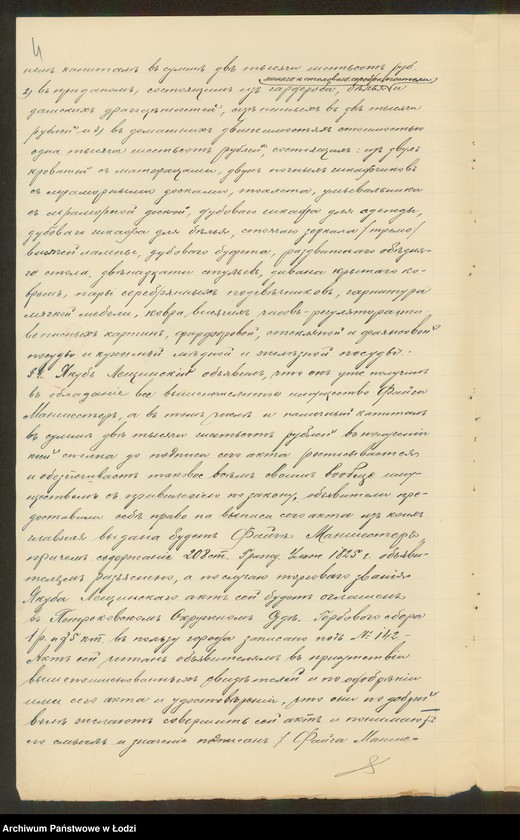 4
номъ капиталъ въ суммѣ двѣ тысячи шестьсотъ руб.
личнаго и столоваго серебра, постели
2) въ приданомъ, состоящимъ изъ гардероба, бѣлья и
дамскихъ драгоцѣнностей, оцѣненныхъ въ двѣ тысячи
рублей и 3) въ домашнихъ движимостяхъ стоимостью
одна тысяча шестьсотъ рублей, состоящихъ: изъ двухъ
кроватей съ матерацами, двухъ ночныхъ шкафчиковъ
съ мраморными досками, тоалета, умывальника
съ мраморной доской, дубоваго шкафа для одежды,
дубоваго шкафа для бѣлья, стоячаго зеркала /трюмо/
висячей лампы, дубоваго буфета, раздвижнаго обѣденна-
го стола, двѣнадцати стульевъ, дивана крытаго ко-
вромъ, пары серебрянныхъ подсвѣчниковъ, гарнитура
мягкой мебели, ковра, висячихъ часовъ-регулятора,
картинъ, фарфоровой, стеклянной и фаянсовой
посуды и кухонной мѣдной и желѣзной посуды.
§4. Якубъ Лещинскій объявилъ, что онъ уже получилъ
въ обладаніе все вышеописанное имущество Файги
Манистеръ, а въ томъ числѣ и наличный капиталъ
въ суммѣ двѣ тысячи шестьсотъ рублей въ полученіи
коей сполна до подписи сего акта росписывается
и обезпечиваетъ таковое всѣмъ своимъ вообще иму-
ществомъ съ по закону, объявители пре-
доставили себѣ право на выписи сего акта изъ коихъ
главная выдана будетъ Файгѣ Манистеръ,
причемъ содержаніе 208 ст. Гражд. Улож. 1825 г. объяви-
телямъ разъяснено, а по случаю торговаго званія
Якуба Лещинскаго актъ сей будетъ оглашенъ
въ Петроковскомъ Окружномъ Судѣ. Гербоваго сбора
1 р. и 5 к. въ пользу города записано подъ № 142.
Актъ сей читанъ объявителямъ въ присутствіи
вышепоименованныхъ свидѣтелей и по одобреніи
ими сего акта и удостовѣреніи, что они по доброй
волѣ желаютъ совершить сей актъ и понимаютъ
его смыслъ и значеніе подписанъ / Файга Манис-
Archiwum Państwowe w Łodzi